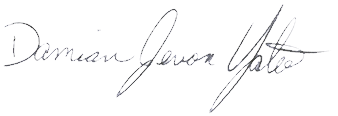 Damian Jevon Yates